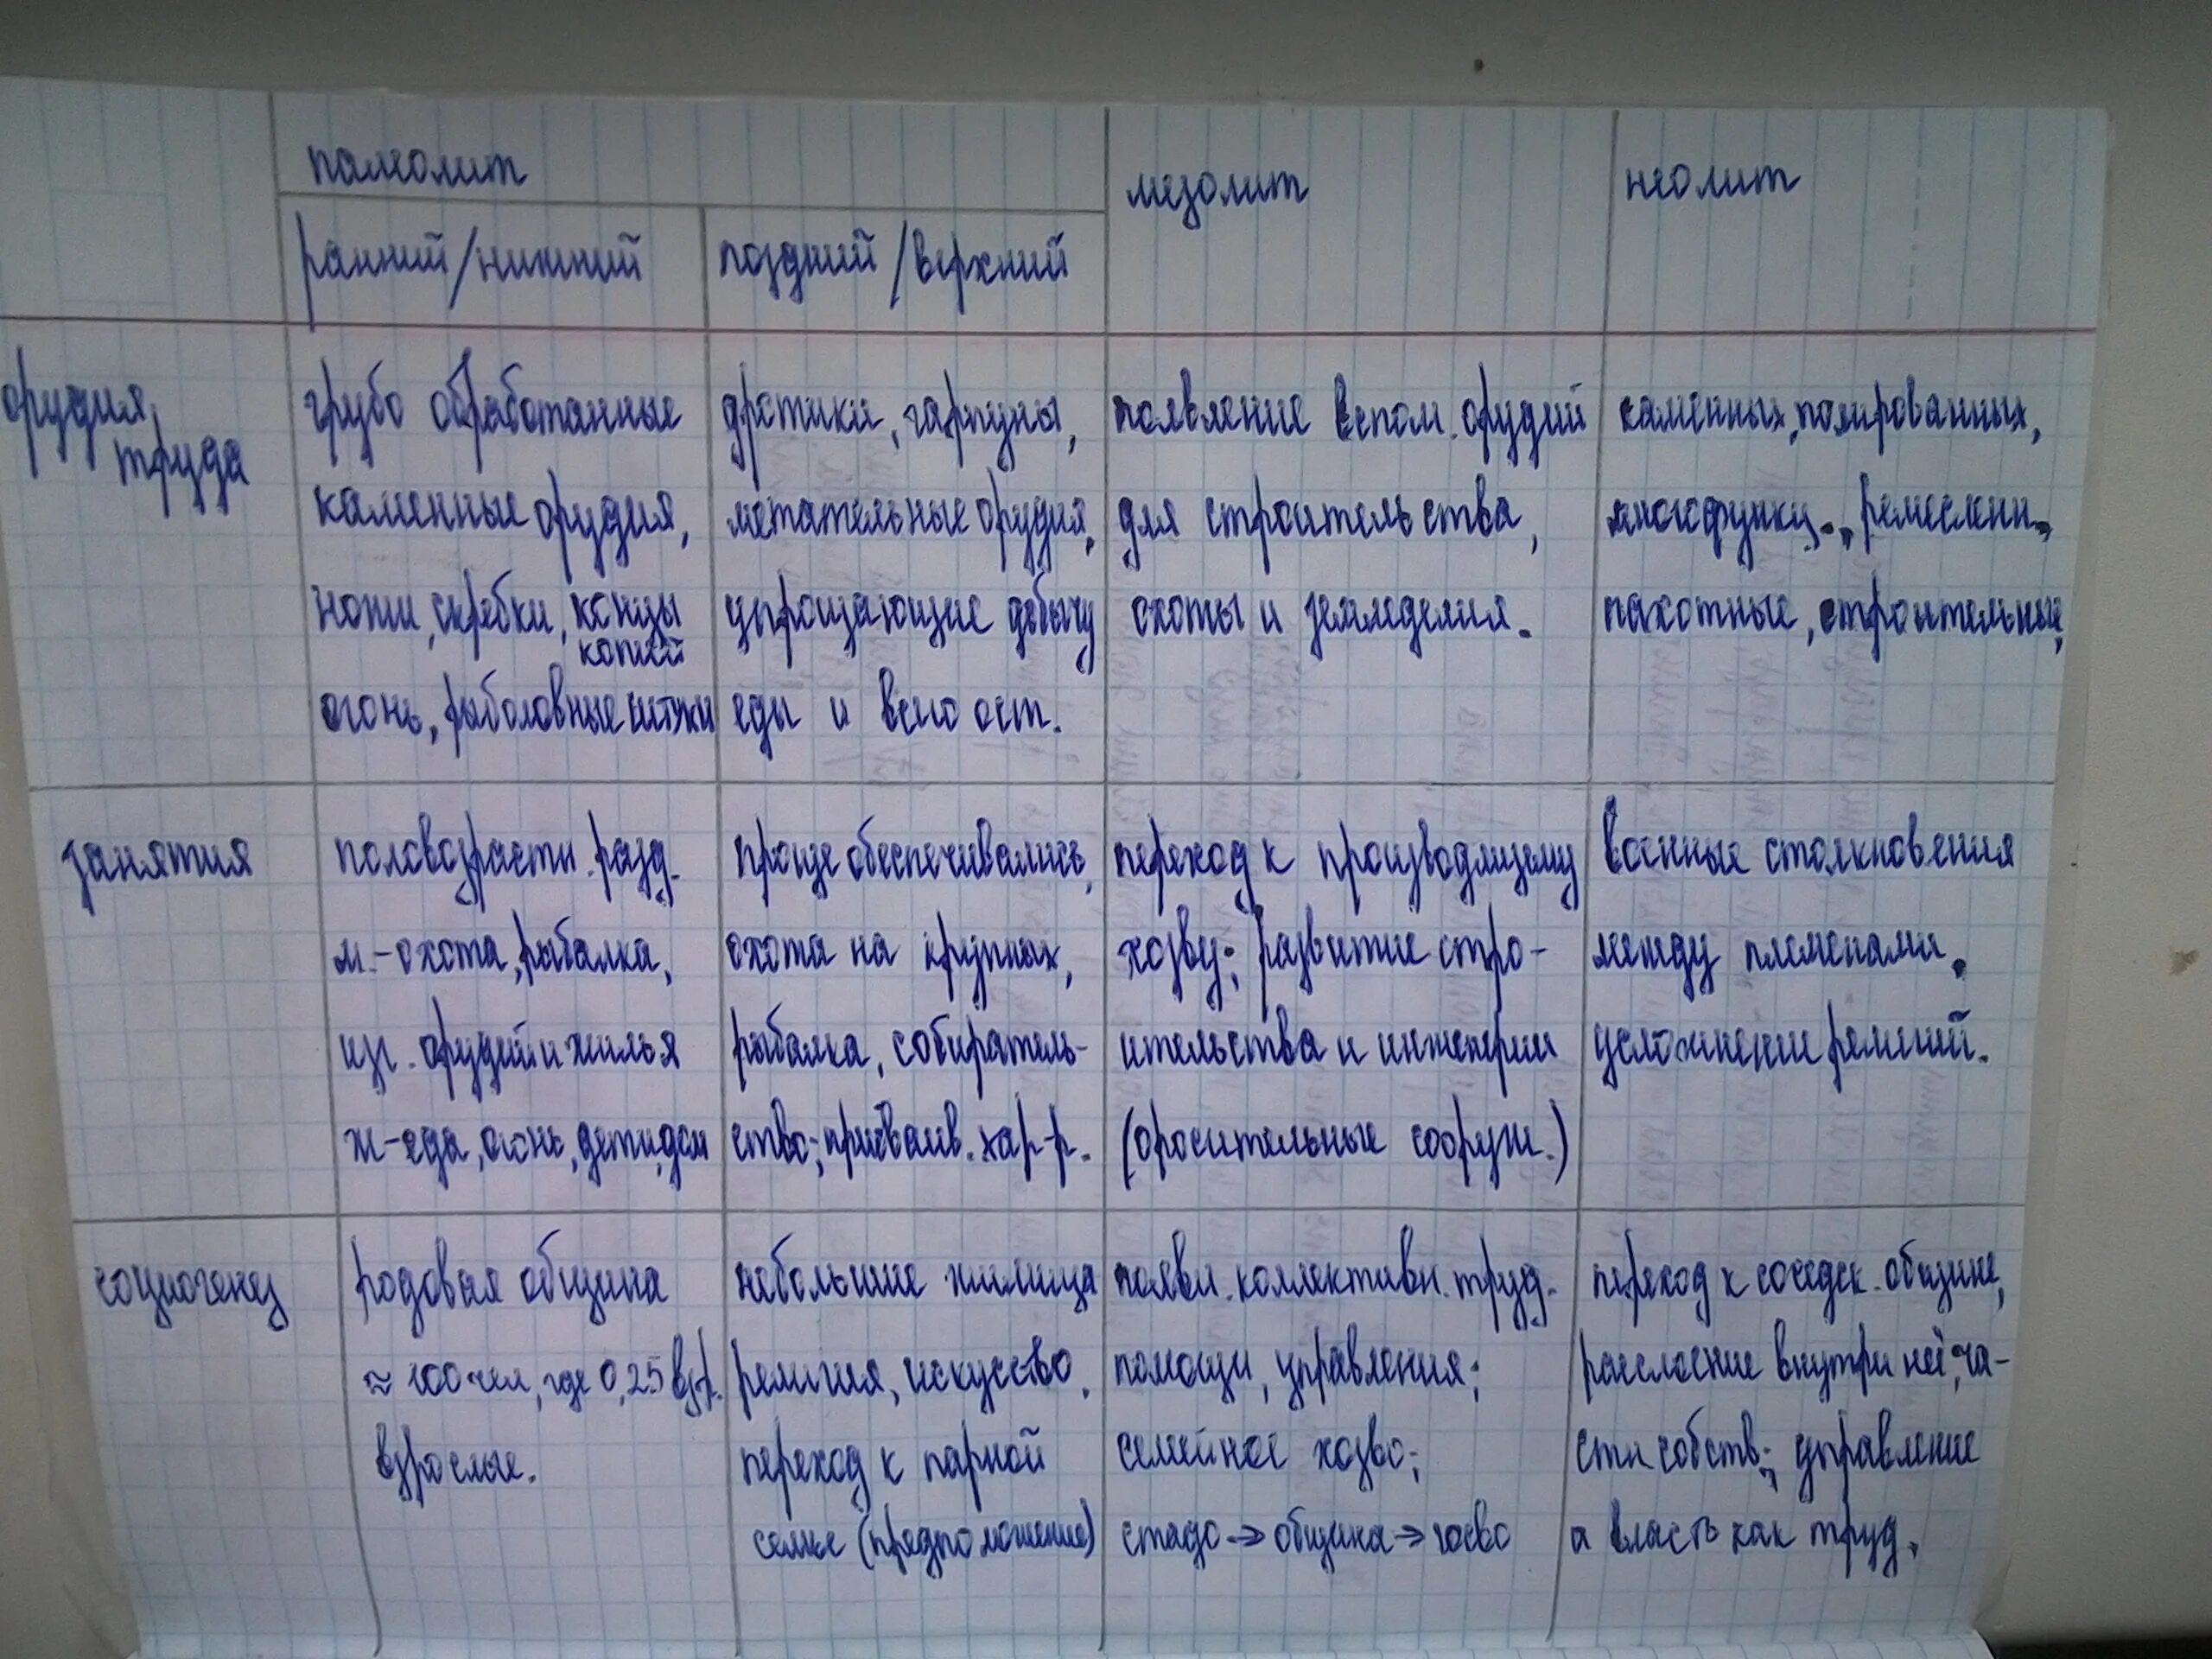 палеолит
мезолит
неолит
ранний/нижний
поздний/верхний
орудия
труда
грубо обработанные
каменные орудия,
ножи, скребки, концы
копий
огонь, рыболовные штуки
дротики, гарпуны,
метательные орудия,
упрощающие добычу
еды и всего ост.
появление вспом. орудий
для строительства,
охоты и земледелия.
каменных, полированных,
многофункц., ремеслен.,
пахотные, строительные,
занятия
половозрастн. разд.
м.-охота, рыбалка,
изг. орудий и жилья
ж-еда, огонь, дети, дом
проще обеспечивались,
охота на крупных,
рыбалка, собиратель-
ство; присваив. хар-р.
переход к производящему
хозву; развитие стро-
ительства и инженерии
(оросительные сооруж.)
военные столкновения
между племенами.
усложнение религий.
социогенез
родовая община
≈ 100 чел, где 0,25 взр.
взрослые.
небольшие жилища
религия, искусство,
переход к парной
семье (предположение)
появл. коллективн. труд.
помощи, управления;
семейное хозво;
стадо → община → госво
переход к соседск. общине,
расслоение внутри неё, ча-
стн собств.; управление
а власть как труд.